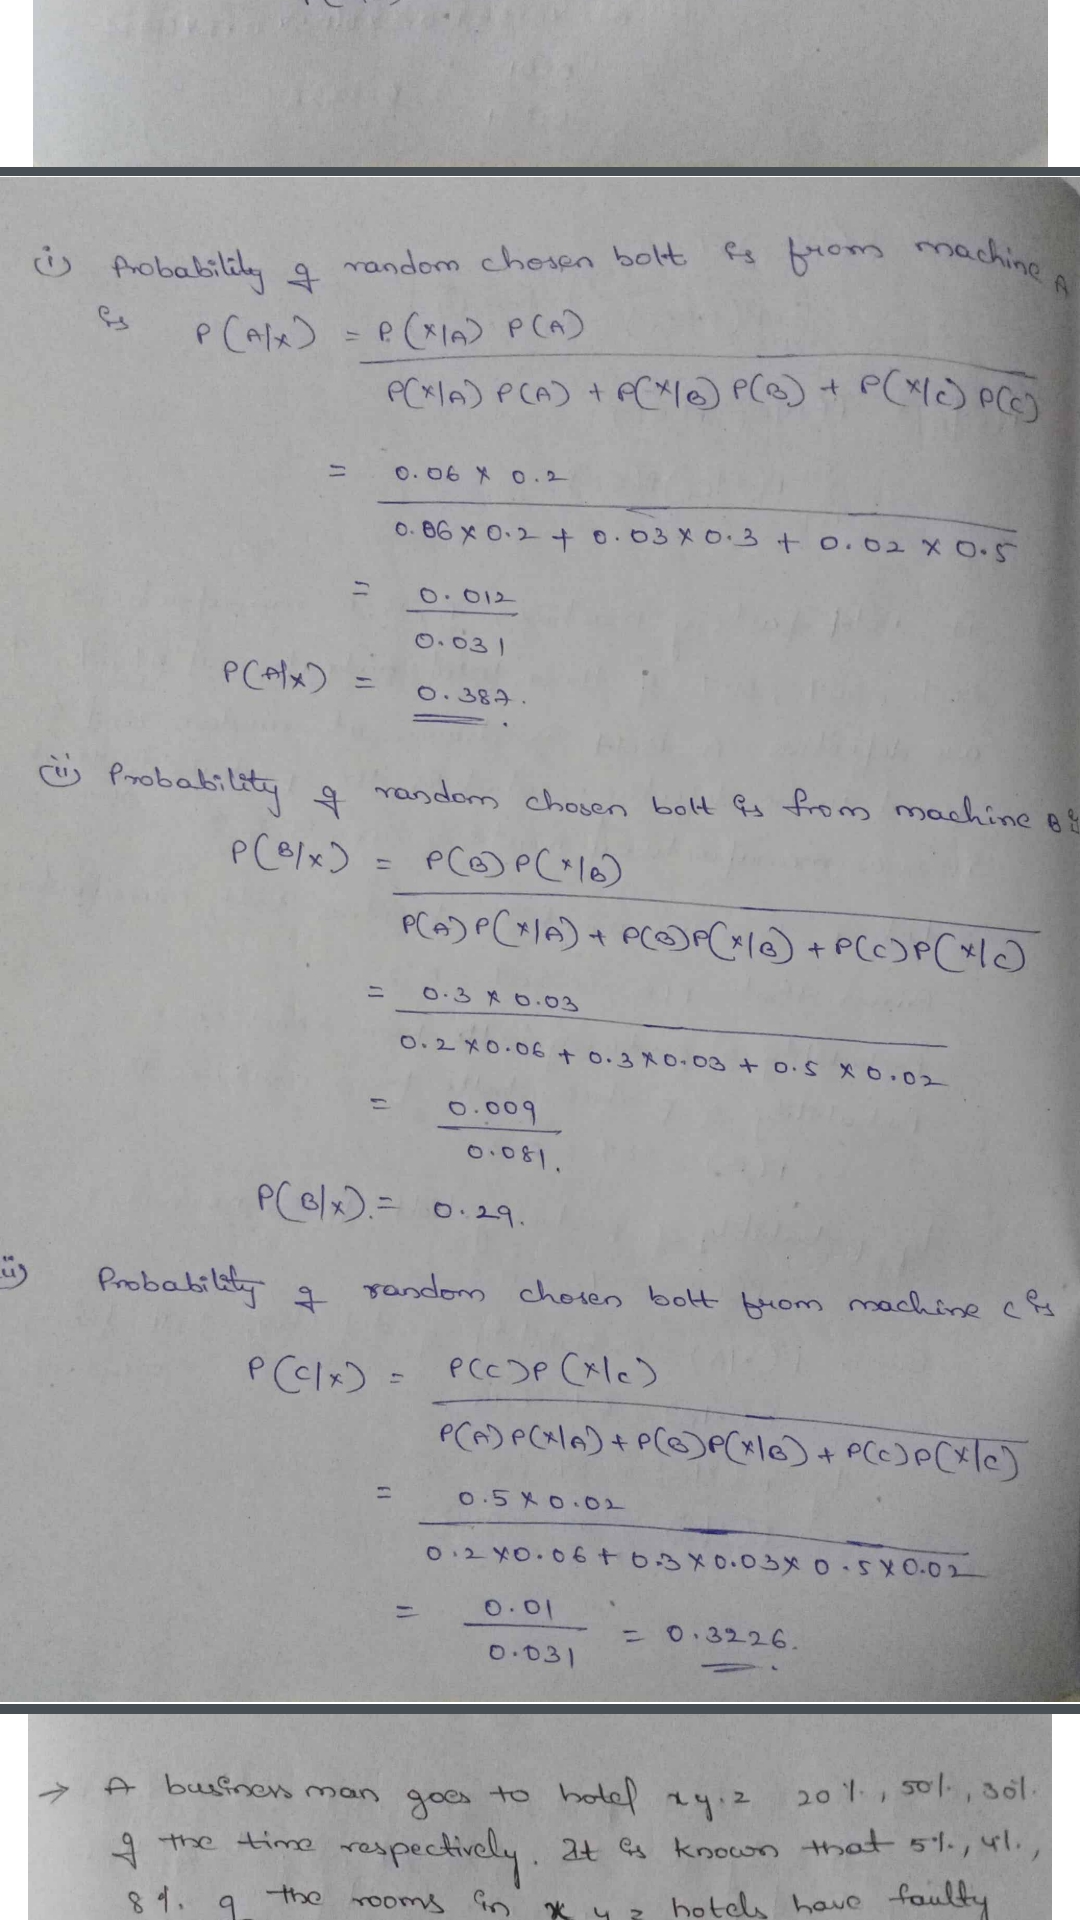 (i) Probability of random chosen bolt is from machine A
is P(A/x) = P(x/A) P(A)
P(x/A) P(A) + P(x/B) P(B) + P(x/C) P(C)
= 0.06 x 0.2
0.06 x 0.2 + 0.03 x 0.3 + 0.02 x 0.5
= 0.012
0.031
P(A/x) = 0.387.
(ii) Probability of random chosen bolt is from machine B is
P(B/x) = P(B) P(x/B)
P(A) P(x/A) + P(B) P(x/B) + P(C) P(x/C)
= 0.3 x 0.03
0.2 x 0.06 + 0.3 x 0.03 + 0.5 x 0.02
= 0.009
0.081.
P(B/x) = 0.29.
ii) Probability of random chosen bolt from machine C is
P(C/x) = P(C) P(x/C)
P(A) P(x/A) + P(B) P(x/B) + P(C) P(x/C)
= 0.5 x 0.02
0.2 x 0.06 + 0.3 x 0.03 x 0.5 x 0.02
= 0.01
0.031 = 0.3226.
→ A business man goes to hotel x y. z 20%, 50%, 30%.
of the time respectively. It is known that 5%, 4%,
8%. of the rooms in x y z hotels have faulty